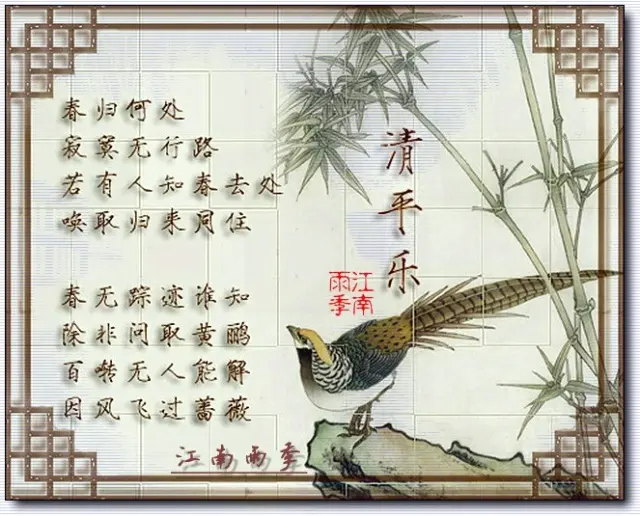 清平乐
春归何处
寂寞无行路
若有人知春去处
唤取归来同住
春无踪迹谁知
除非问取黄鹂
百啭无人能解
因风飞过蔷薇
江南雨季
江南雨季